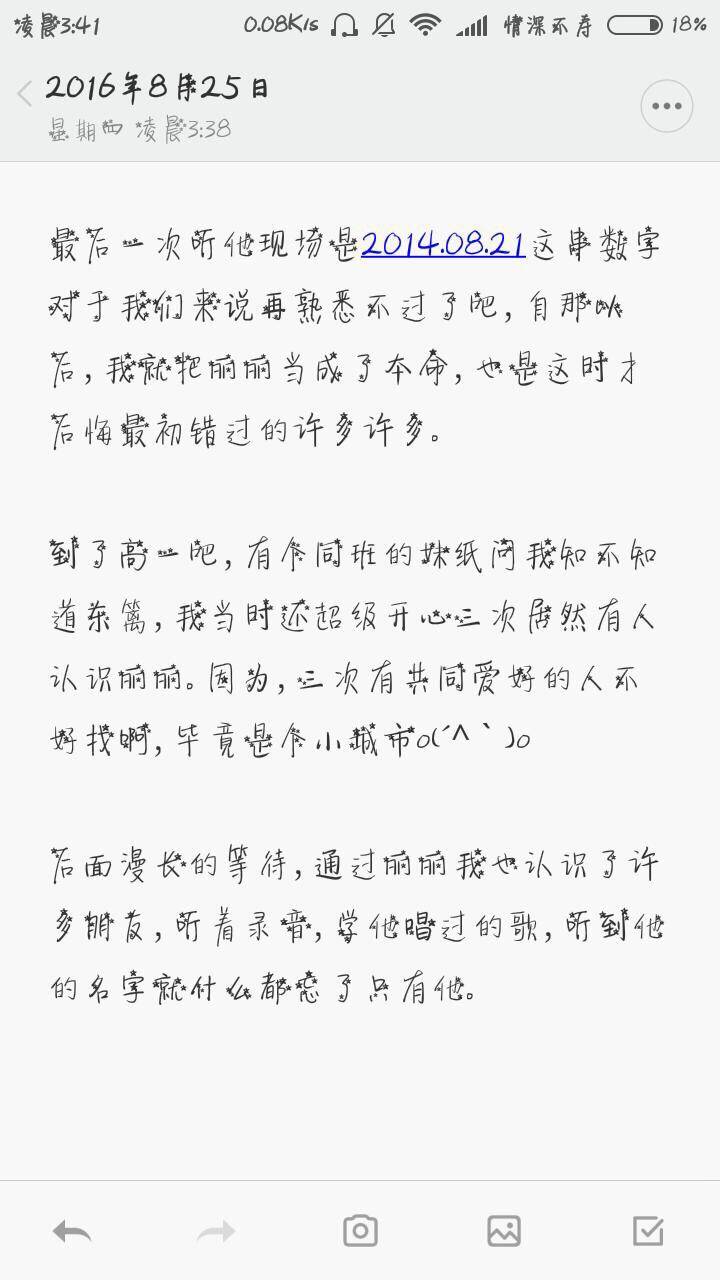 凌晨3:41 0.08K/s 情深不寿 18%
2016年8月25日
星期四 凌晨3:38
最后一次听他现场是2014.08.21这串数字
对于我们来说再熟悉不过了吧，自那以
后，我就把丽丽当成了本命，也是这时才
后悔最初错过的许多许多。
到了高一吧，有个同班的妹纸问我知不知
道东篱，我当时还超级开心三次居然有人
认识丽丽。因为，三次有共同爱好的人不
好找啊，毕竟是个小城市o(´^｀)o
后面漫长的等待，通过丽丽我也认识了许
多朋友，听着录音，学他唱过的歌，听到他
的名字就什么都忘了只有他。